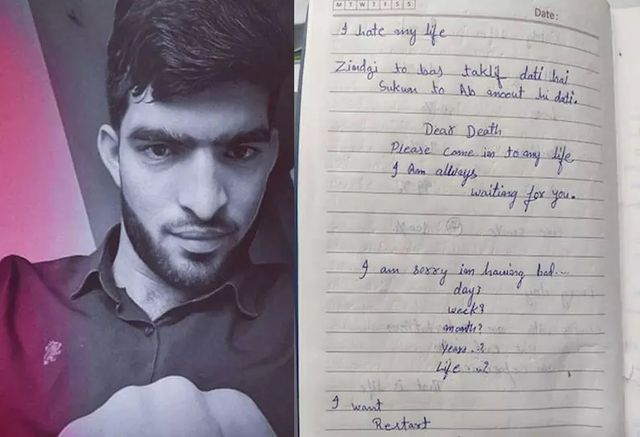 M T W T F S S
Date:
I hate my life
Zindgi to bas taklif dati hai
Sukun to Ab moout hi dati.
Dear Death
Please come in to my life
I Am allways
waiting for you.
I am sorry im having bad....
day?
week?
month?
years..?
Life ..?
I want
Restart